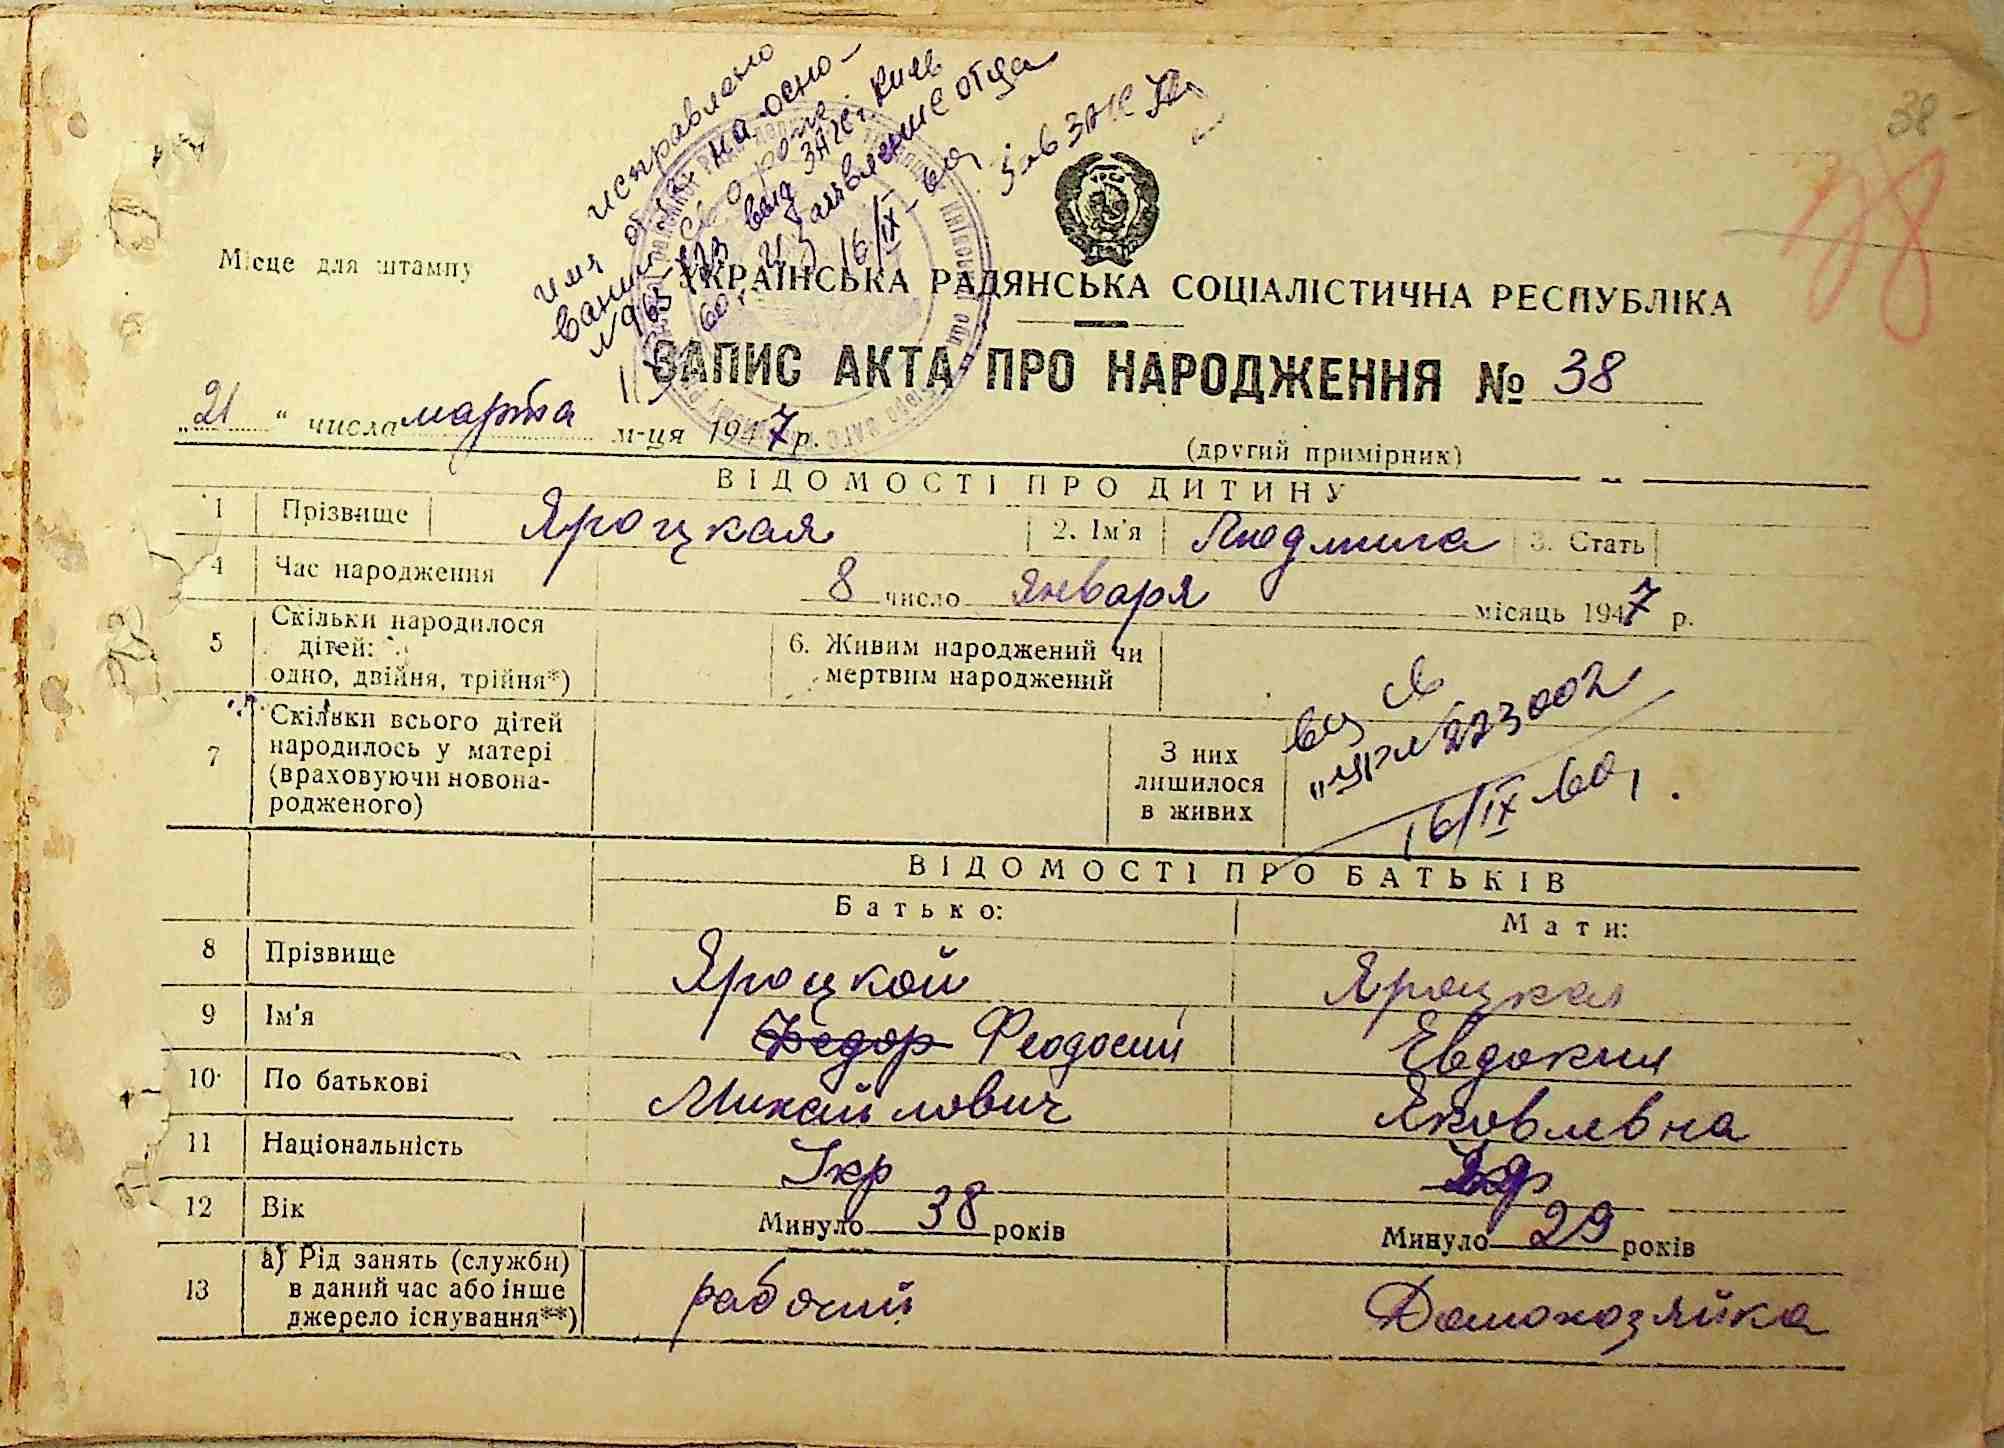 38
38
имя отца исправлено
на осно-
вании св о рожд
№ 965473 выд ЗАГС г Киев
заявление отца
16/IX-60г
Зав ЗАГС
Місце для штампу
УКРАЇНСЬКА РАДЯНСЬКА СОЦІАЛІСТИЧНА РЕСПУБЛІКА
ЗАПИС АКТА ПРО НАРОДЖЕННЯ № 38
„21“ числа марта м-ця 1947 р.
(другий примірник)
ВІДОМОСТІ ПРО ДИТИНУ
1 Прізвище Яроцкая 2. Ім'я Людмила 3. Стать
4 Час народження 8 число января місяць 1947 р.
5 Скільки народилося
дітей:
одно, двійня, трійня*)
6. Живим народжений чи
мертвим народжений
7 Скільки всього дітей
народилось у матері
(враховуючи новона-
родженого)
З них
лишилося
в живих
№ 223002
16/IX 60г.
ВІДОМОСТІ ПРО БАТЬКІВ
Батько: Мати:
8 Прізвище Яроцкой Яроцкая
9 Ім'я Федор Феодосий Евдокия
10 По батькові Михайлович Яковлевна
11 Національність Укр Укр
12 Вік Минуло 38 років Минуло 29 років
13 а) Рід занять (служби)
в даний час або інше
джерело існування**)
рабочий Домохозяйка